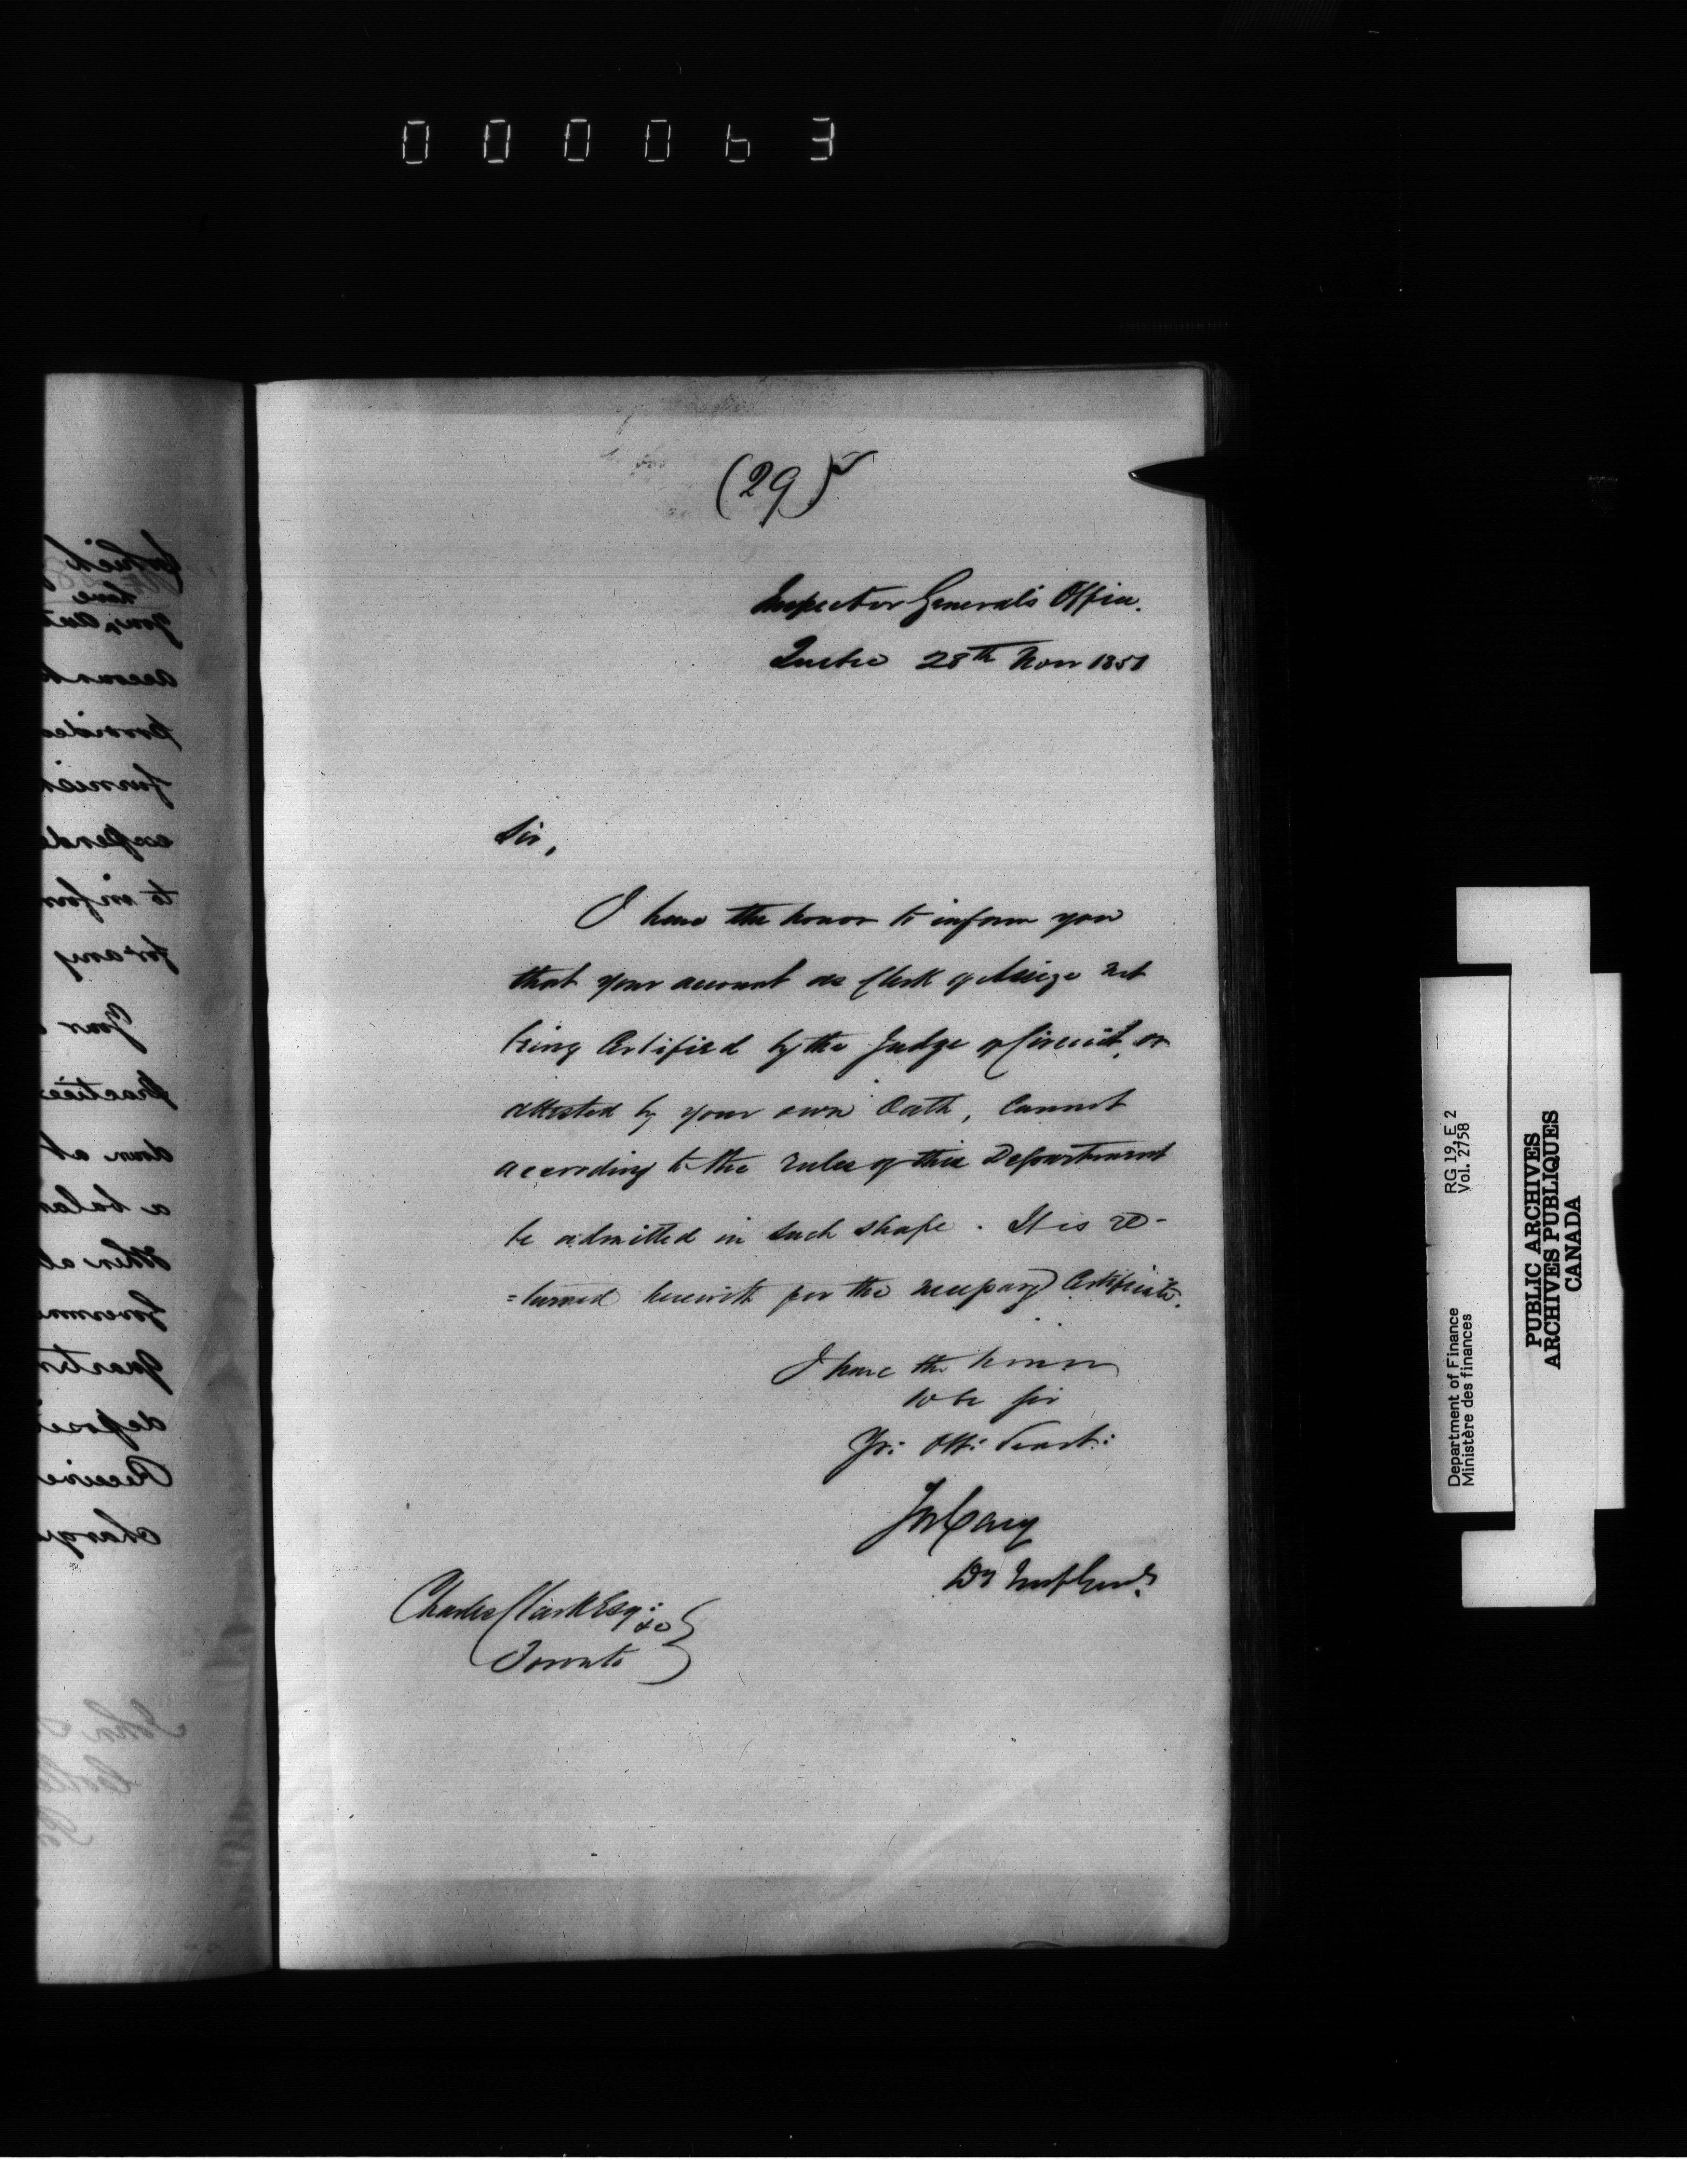 000063
(29)
Inspector General's Office.
Quebec 28th Novr 1851
Sir,
I have the honor to inform you
that your account as Clerk of Assize not
being Certified by the Judge of Circuit, or
attested by your own Oath, Cannot
according to the rules of this Department
be admitted in such shape. It is re-
=turned herewith for the necessary Certificate.
I have the honor
to be Sir
Yr: Ob: Servt:
Jos Cary
Dy Insp Genl.
Charles Clark Esq: &c
Toronto
RG 19, E 2
Vol. 2758
Department of Finance
Ministère des finances
PUBLIC ARCHIVES
ARCHIVES PUBLIQUES
CANADA